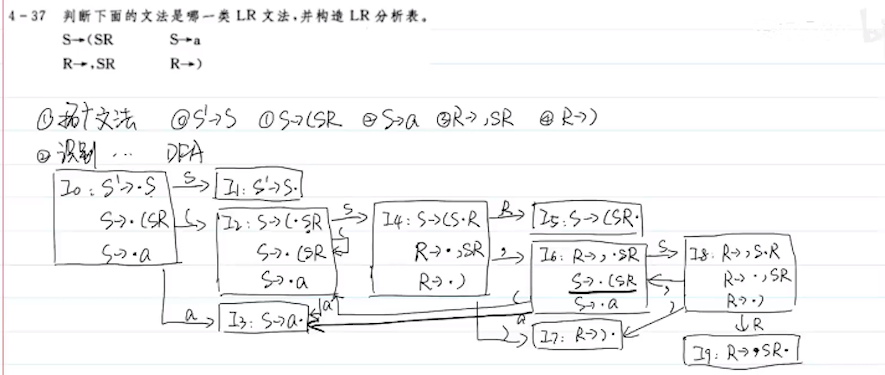 4-37 判断下面的文法是哪一类 LR 文法,并构造 LR 分析表。
S→(SR S→a
R→,SR R→)
①拓广文法 ⓪S'→S ①S→(SR ②S→a ③R→,SR ④R→)
②识别… DFA
I0: S'→·S
S→·(SR
S→·a
S
I1: S'→S·
(
I2: S→(·SR
S→·(SR
S→·a
(
S
I4: S→(S·R
R→·,SR
R→·)
R
I5: S→(SR·
,
I6: R→,·SR
S→·(SR
S→·a
S
I8: R→,S·R
R→·,SR
R→·)
,
a
I3: S→a·
a
(
a
)
I7: R→)·
)
↓R
I9: R→,SR·